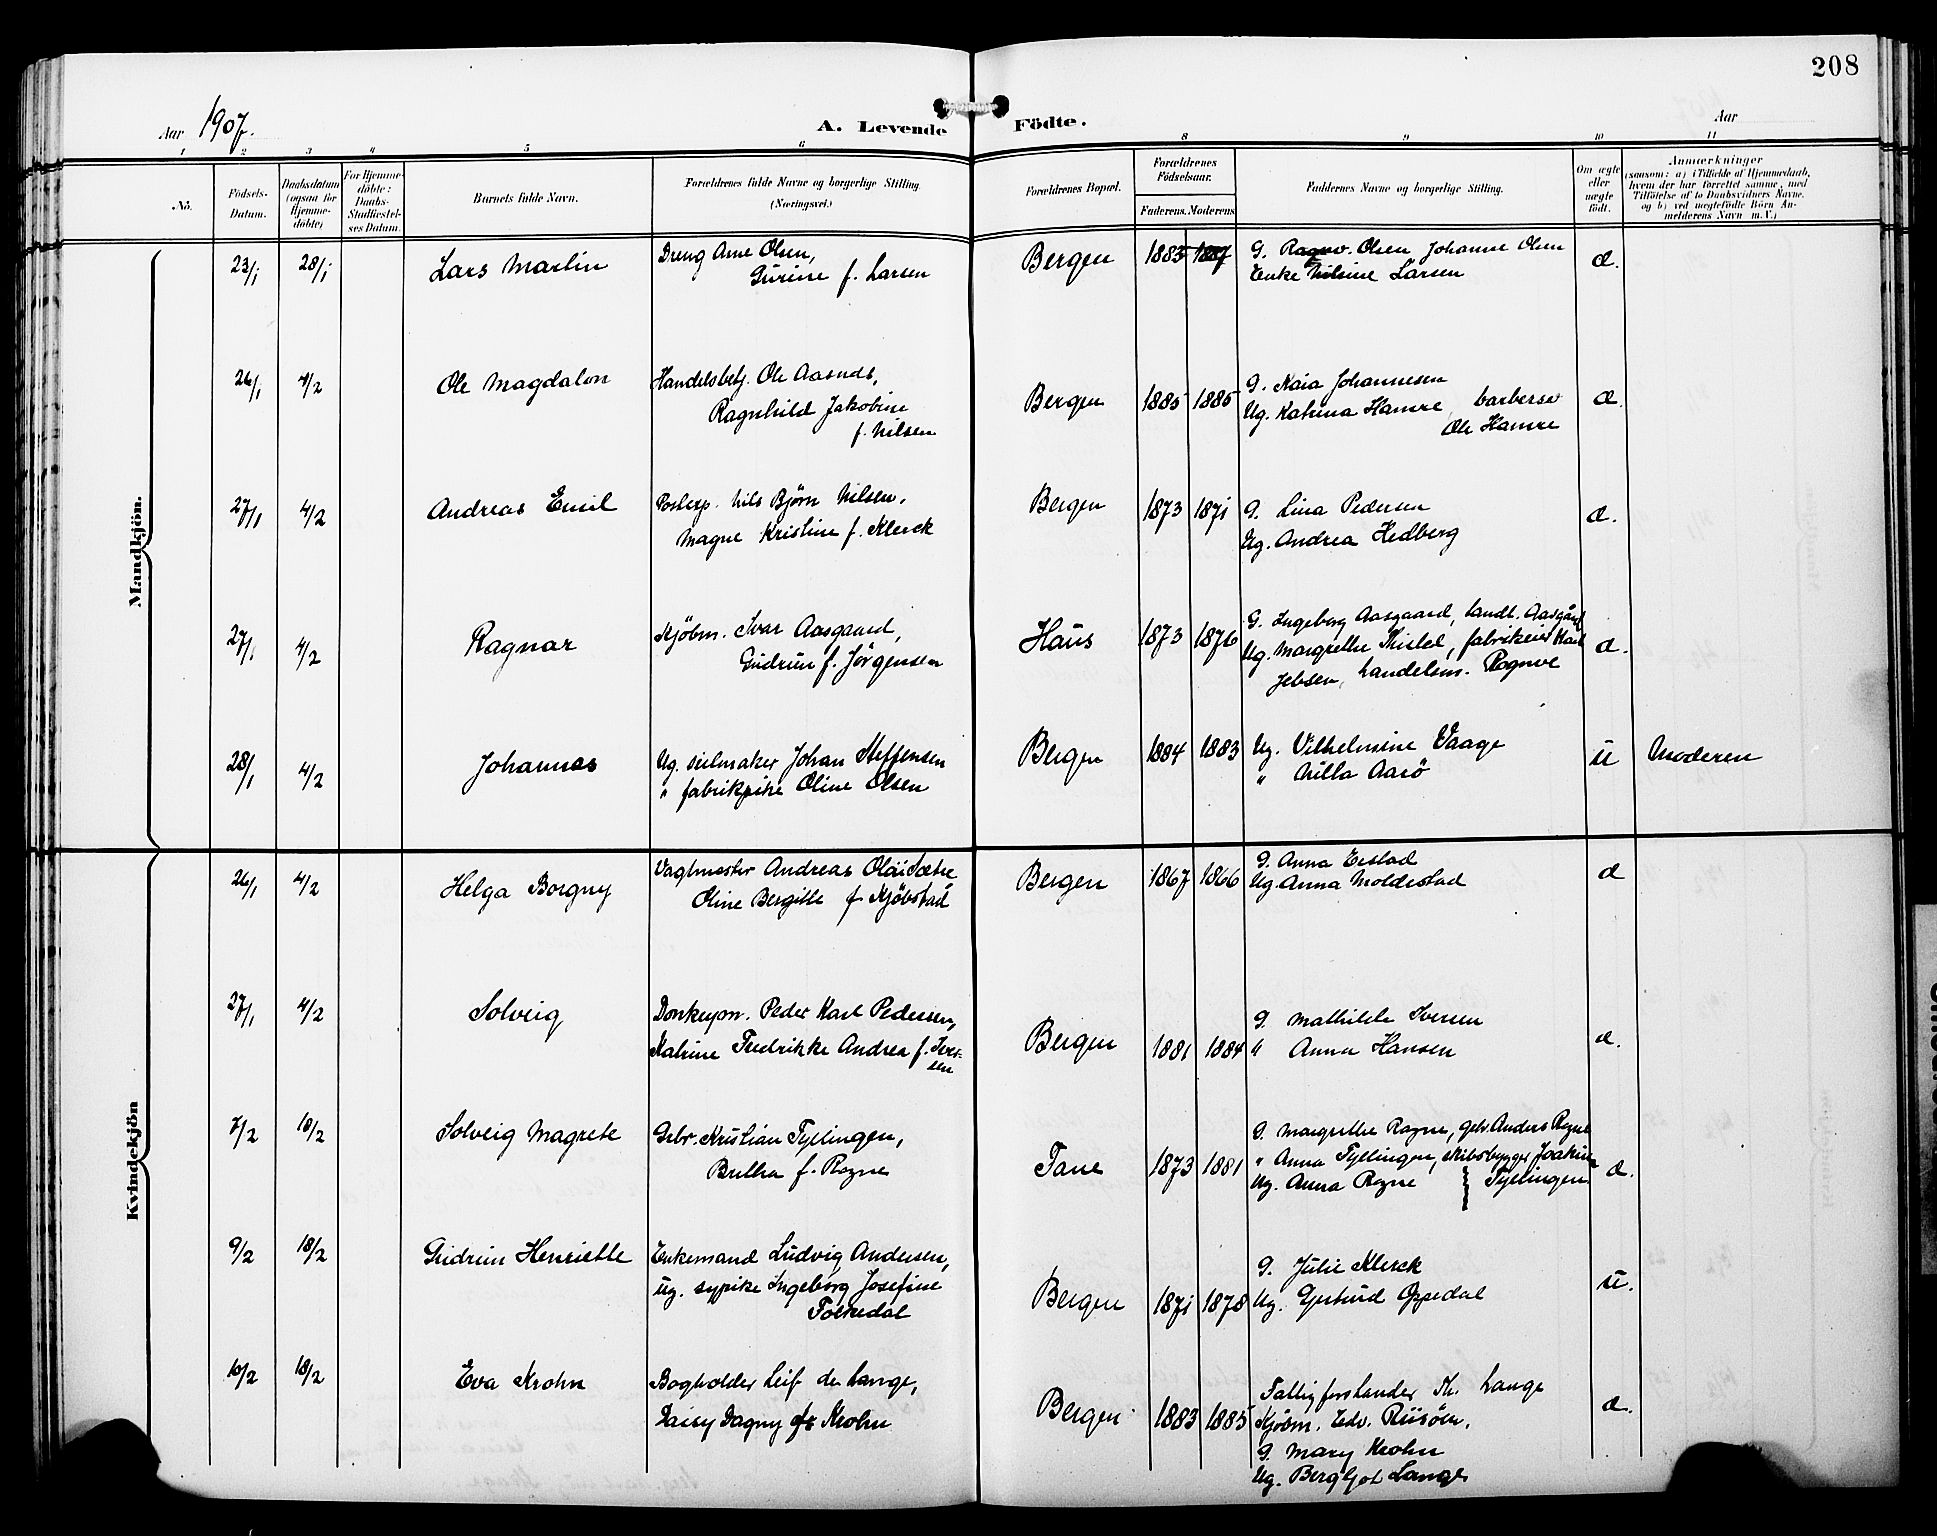 208
Aar 1907. A. Levende Födte. Aar
1 2 3 4 5 6 8 9 10 11
No.
Födsels-Datum.
Daabsdatum (ogsaa for Hjemme-döbte)
For Hjemme-döbte: Daabs-Stadfæstel-ses Datum.
Barnets fulde Navn.
Forældrenes fulde Navne og borgerlige Stilling. (Næringsvei.)
Forældrenes Bopæl.
Forældrenes Födselsaar.
Faderens. Moderens
Faddernes Navne og borgerlige Stilling.
Om ægte eller uægte födt.
Anmærkninger
(saasom: a) i Tilfælde af Hjemmedaab, hvem der har forrettet samme, med Tilföielse af to Daabsvidners Navne, og b) ved uægtefödte Börn An-melderens Navn m. V.)
Mandkjön.
23/1 28/1 Lars Martin
Dreng Arne Olsen,
Gurine f. Larsen
Bergen 1885 1887
G. Ragnv. Olsen, Johanne Olsen
Enke Nilsine Larsen
æ.
26/1 4/2 Ole Magdalon
Handelsbetj. Ole Aasnds,
Ragnhild Jakobine
f. Nilsen
Bergen 1885 1885
G. Kaia Johannesen
Ug. Katrina Hamre, barberer
Ole Hamre
æ.
27/1 4/2 Andreas Emil
Postexp. Nils Björn Nilsen,
Magne Kristine f. Klerck
Bergen 1873 1871
G. Lina Pedersen
Ug. Andrea Hedberg
æ.
27/1 4/2 Ragnar
Kjöbm. Ivar Aasgaard,
Gudrun f. Jörgensen
Haus 1873 1876
G. Ingeborg Aasgaard, landh. Aasgård
Ug. Margrethe Thistel, fabrikeier Karl
Jebsen, handelsm. Rognve
æ.
28/1 4/2 Johannes
Ug. seilmaker Johan Steffensen
" fabrikpike Oline Olsen
Bergen 1884 1883
Ug. Vilhelmine Vaage
" Milla Aarö
u Moderen
Kvindekjön
26/1 4/2 Helga Borgny
Vagtmester Andreas Olai Sætre
Oline Bergitte f. Kjöbstad
Bergen 1867 1866
G. Anna Eistad
Ug. Anna Moldestad
æ
27/1 4/2 Solveig
Donkeym. Peder Karl Pedersen,
Katrine Fredrikke Andrea f. Iver-
sen
Bergen 1881 1884
G. Mathilde Iversen
" Anna Hansen
æ.
7/2 10/2 Solveig Magrete
Gbr. Kristian Tyllingen,
Britha f. Rogne
Fane 1873 1881
G. Margrethe Rogne, gbr. Anders Rogne
" Anna Tyllingen, skibsbygger Joakim
Ug. Anna Rogne Tyllingen
æ.
9/2 18/2 Gudrun Henriette
Enkemand Ludvig Andersen,
ug. sypike Ingeborg Josefine
Folkedal
Bergen 1871 1878
G. Julie Klerck
Ug. Gjertrud Oppedal
u.
10/2 18/2 Eva Krohn
Bogholder Leif de Lange,
Daisy Dagny f. Krohn
Bergen. 1883 1885
Fattigforstander Th. Lange
Kjöbm. Edv. Riisöen,
G. Mary Krohn
Ug. Bergljot Lange
æ.